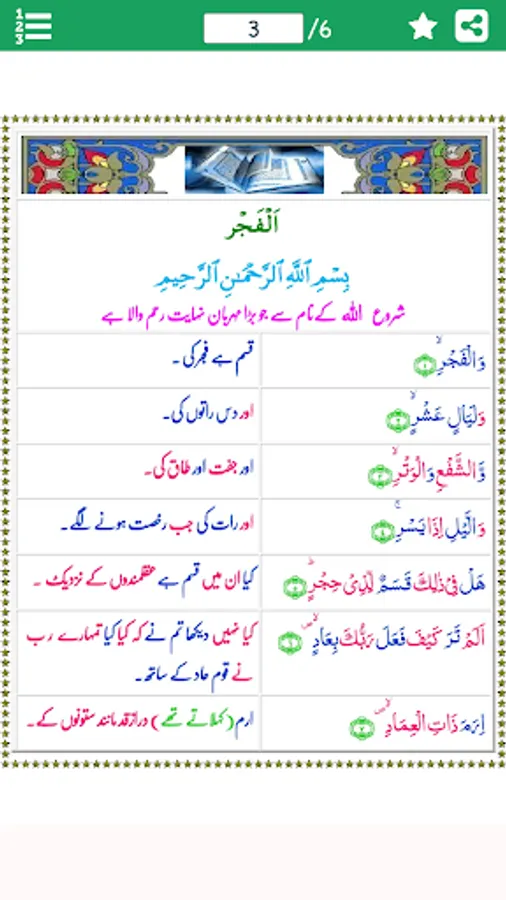 1
2
3
3 /6
اَلْفَجْر
بِسْمِ اللَّهِ الرَّحْمَٰنِ الرَّحِيمِ
شروع اللہ کے نام سے جو بڑا مہربان نہایت رحم والا ہے
وَالْفَجْرِۙ ۱
قسم ہے فجر کی ۔
وَلَيَالٍ عَشْرٍۙ ۲
اور دس راتوں کی۔
وَّالشَّفْعِ وَالْوَتْرِۙ ۳
اور جفت اور طاق کی۔
وَالَّيْلِ اِذَا يَسْرِۚ ۴
اور رات کی جب رخصت ہونے لگے۔
هَلْ فِیْ ذٰلِكَ قَسَمٌ لِّذِیْ حِجْرٍؕ ۵
کیا ان میں قسم ہے عقلمندوں کے نزدیک ۔
اَلَمْ تَرَ كَيْفَ فَعَلَ رَبُّكَ بِعَادٍۙ ۶
کیا نہیں دیکھا تم نے کہ کیا کیا تمہارے رب
نے قوم عاد کے ساتھ۔
اِرَمَ ذَاتِ الْعِمَادِۙ ۷
ارم (کہلاتے تھے) دراز قد مانند ستونوں کے۔